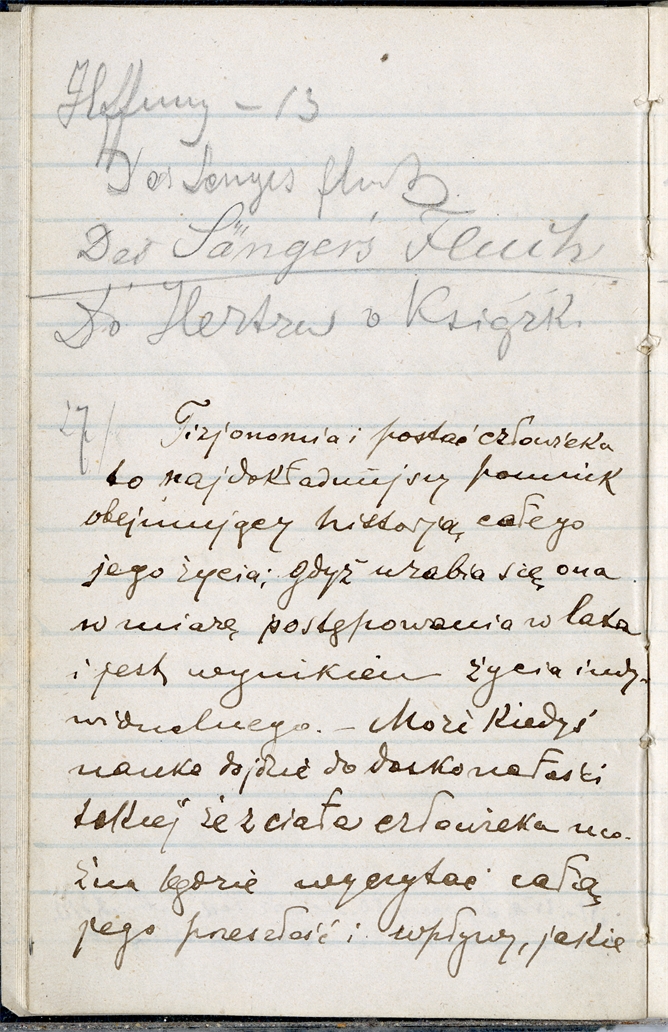 Hoffnung – 13
Des Senges fluch
Des Sänger's Fluch
Do Hertza o Książk.
27/ Fizjonomia i postać człowieka
to najdokładniejszy pomnik
obejmujący historją całego
jego życia; gdyż urabia się ona
w miarę postępowania w lata
i jest wynikiem życia indy-
widualnego. – Może kiedyś
nauka dojdzie do doskonałości
takiej że z ciała człowieka mo-
żna będzie wyczytać całą
jego przeszłość i wpływy, jakie